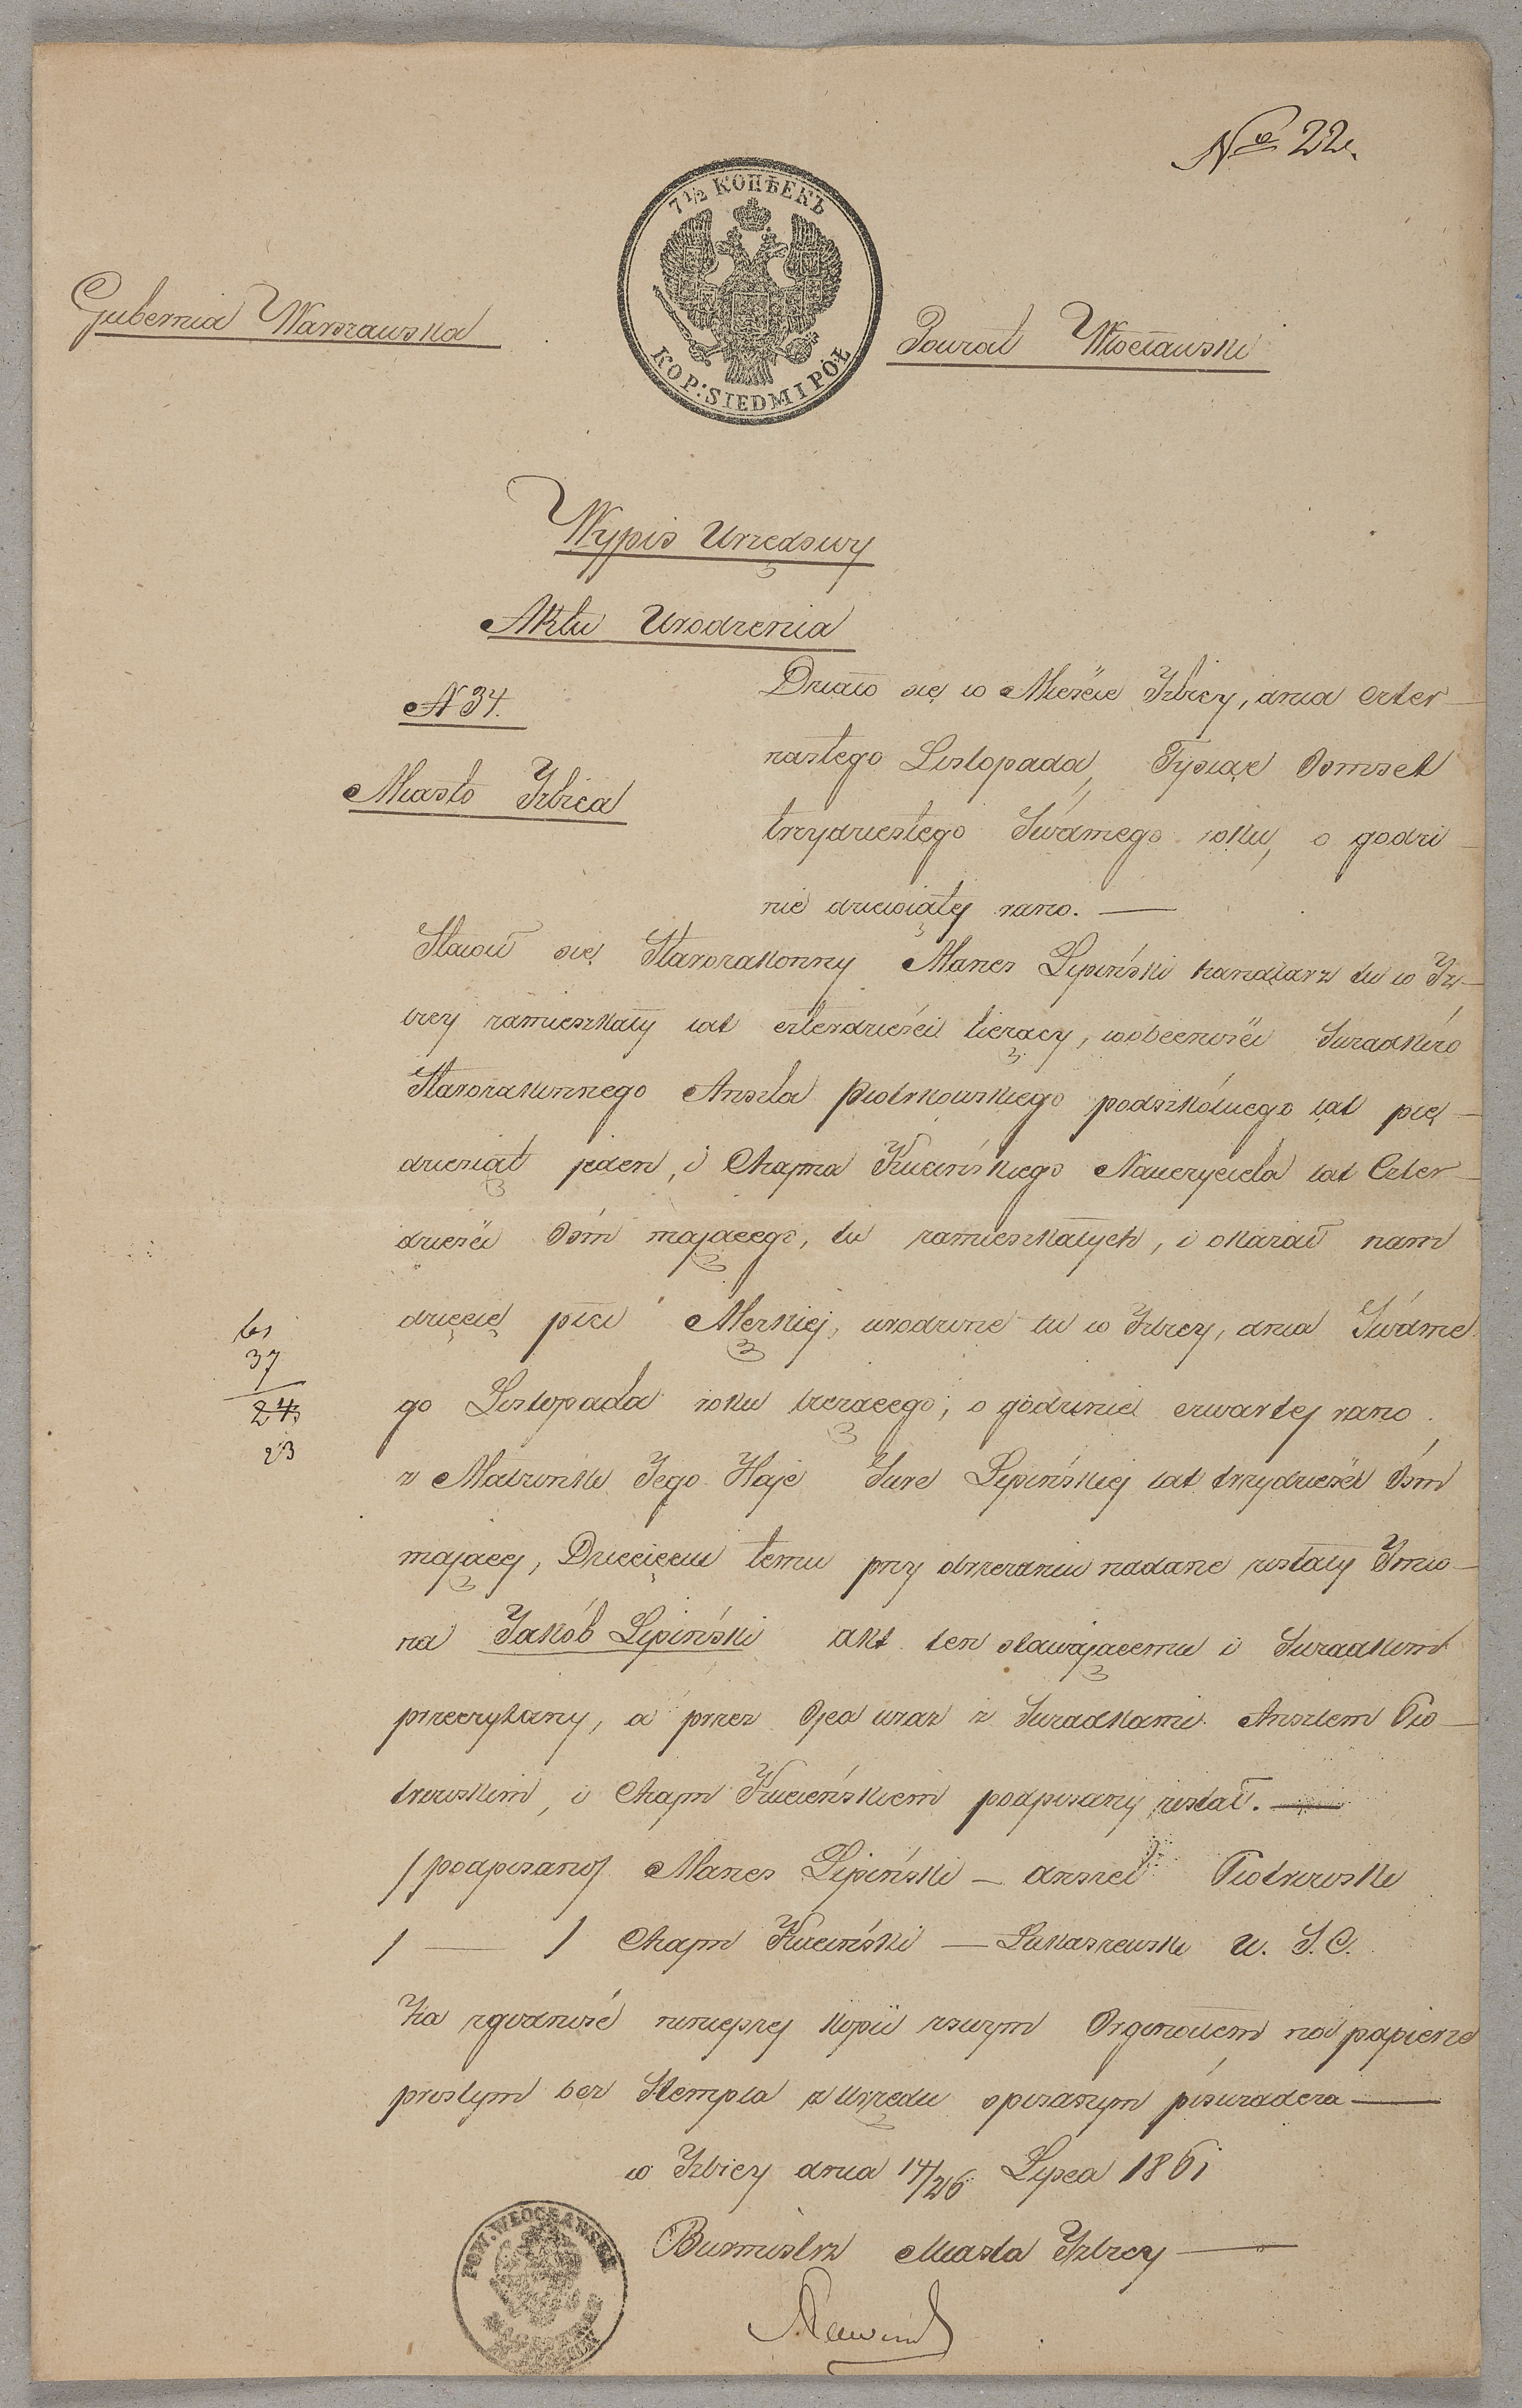 No 22.
7½ КОПѢЕКЪ
KOP: SIEDM I PÓŁ
Gubernia Warszawska
Powiat Włocławski
Wypis Urzędowy
Aktu Urodzenia
N 34.
Miasto Izbica
Działo się w Mieście Izbicy, dnia czter-
nastego Listopada, Tysiąc Osmset
trzydziestego Siódmego roku, o godzi-
nie dziewiątej rano. —
Stawił się Starozakonny Manes Lipiński handlarz tu w Iz-
bicy zamieszkały lat czterdzieści liczący, w obecności Swiadków
Starozakonnego Anszla Piotrkowskiego podszkólnego lat pię-
dziesiąt jeden, i Chajma Kucińskiego Nauczyciela lat Czter-
dzieści Ośm mającego, tu zamieszkałych, i okazał nam
dziecię płci Męzkiej, urodzone tu w Izbicy, dnia Siódme
go Listopada roku bieżącego; o godzinie czwartej rano
z Małżonki Jego Haje Sure Lipińskiej lat trzydzieści Ośm
mającej, Dziecięciu temu przy obrzezaniu nadane zostały Imio-
na Jakób Lipiński akt ten stawającemu i Swiadkom
przeczytany, a przez Ojca wraz z Swiadkami Anszlem Pio-
trowskim, i Chajm Kucińskiem podpisany został. —
/podpisano/ Manes Lipiński — Anszel Piotrowski
/ — / Chajm Kuciński — Łukaszewski U. S. C.
Za zgodność niniejszej kopii zswym Orginałem na papierze
prostym bez Stempla z Urzędu spisanym pświadcza —
w Izbicy dnia 14/26 Lipca 1861
Burmistrz Miasta Izbicy —
61
37
24
23
POW. WŁOCŁAWSKI